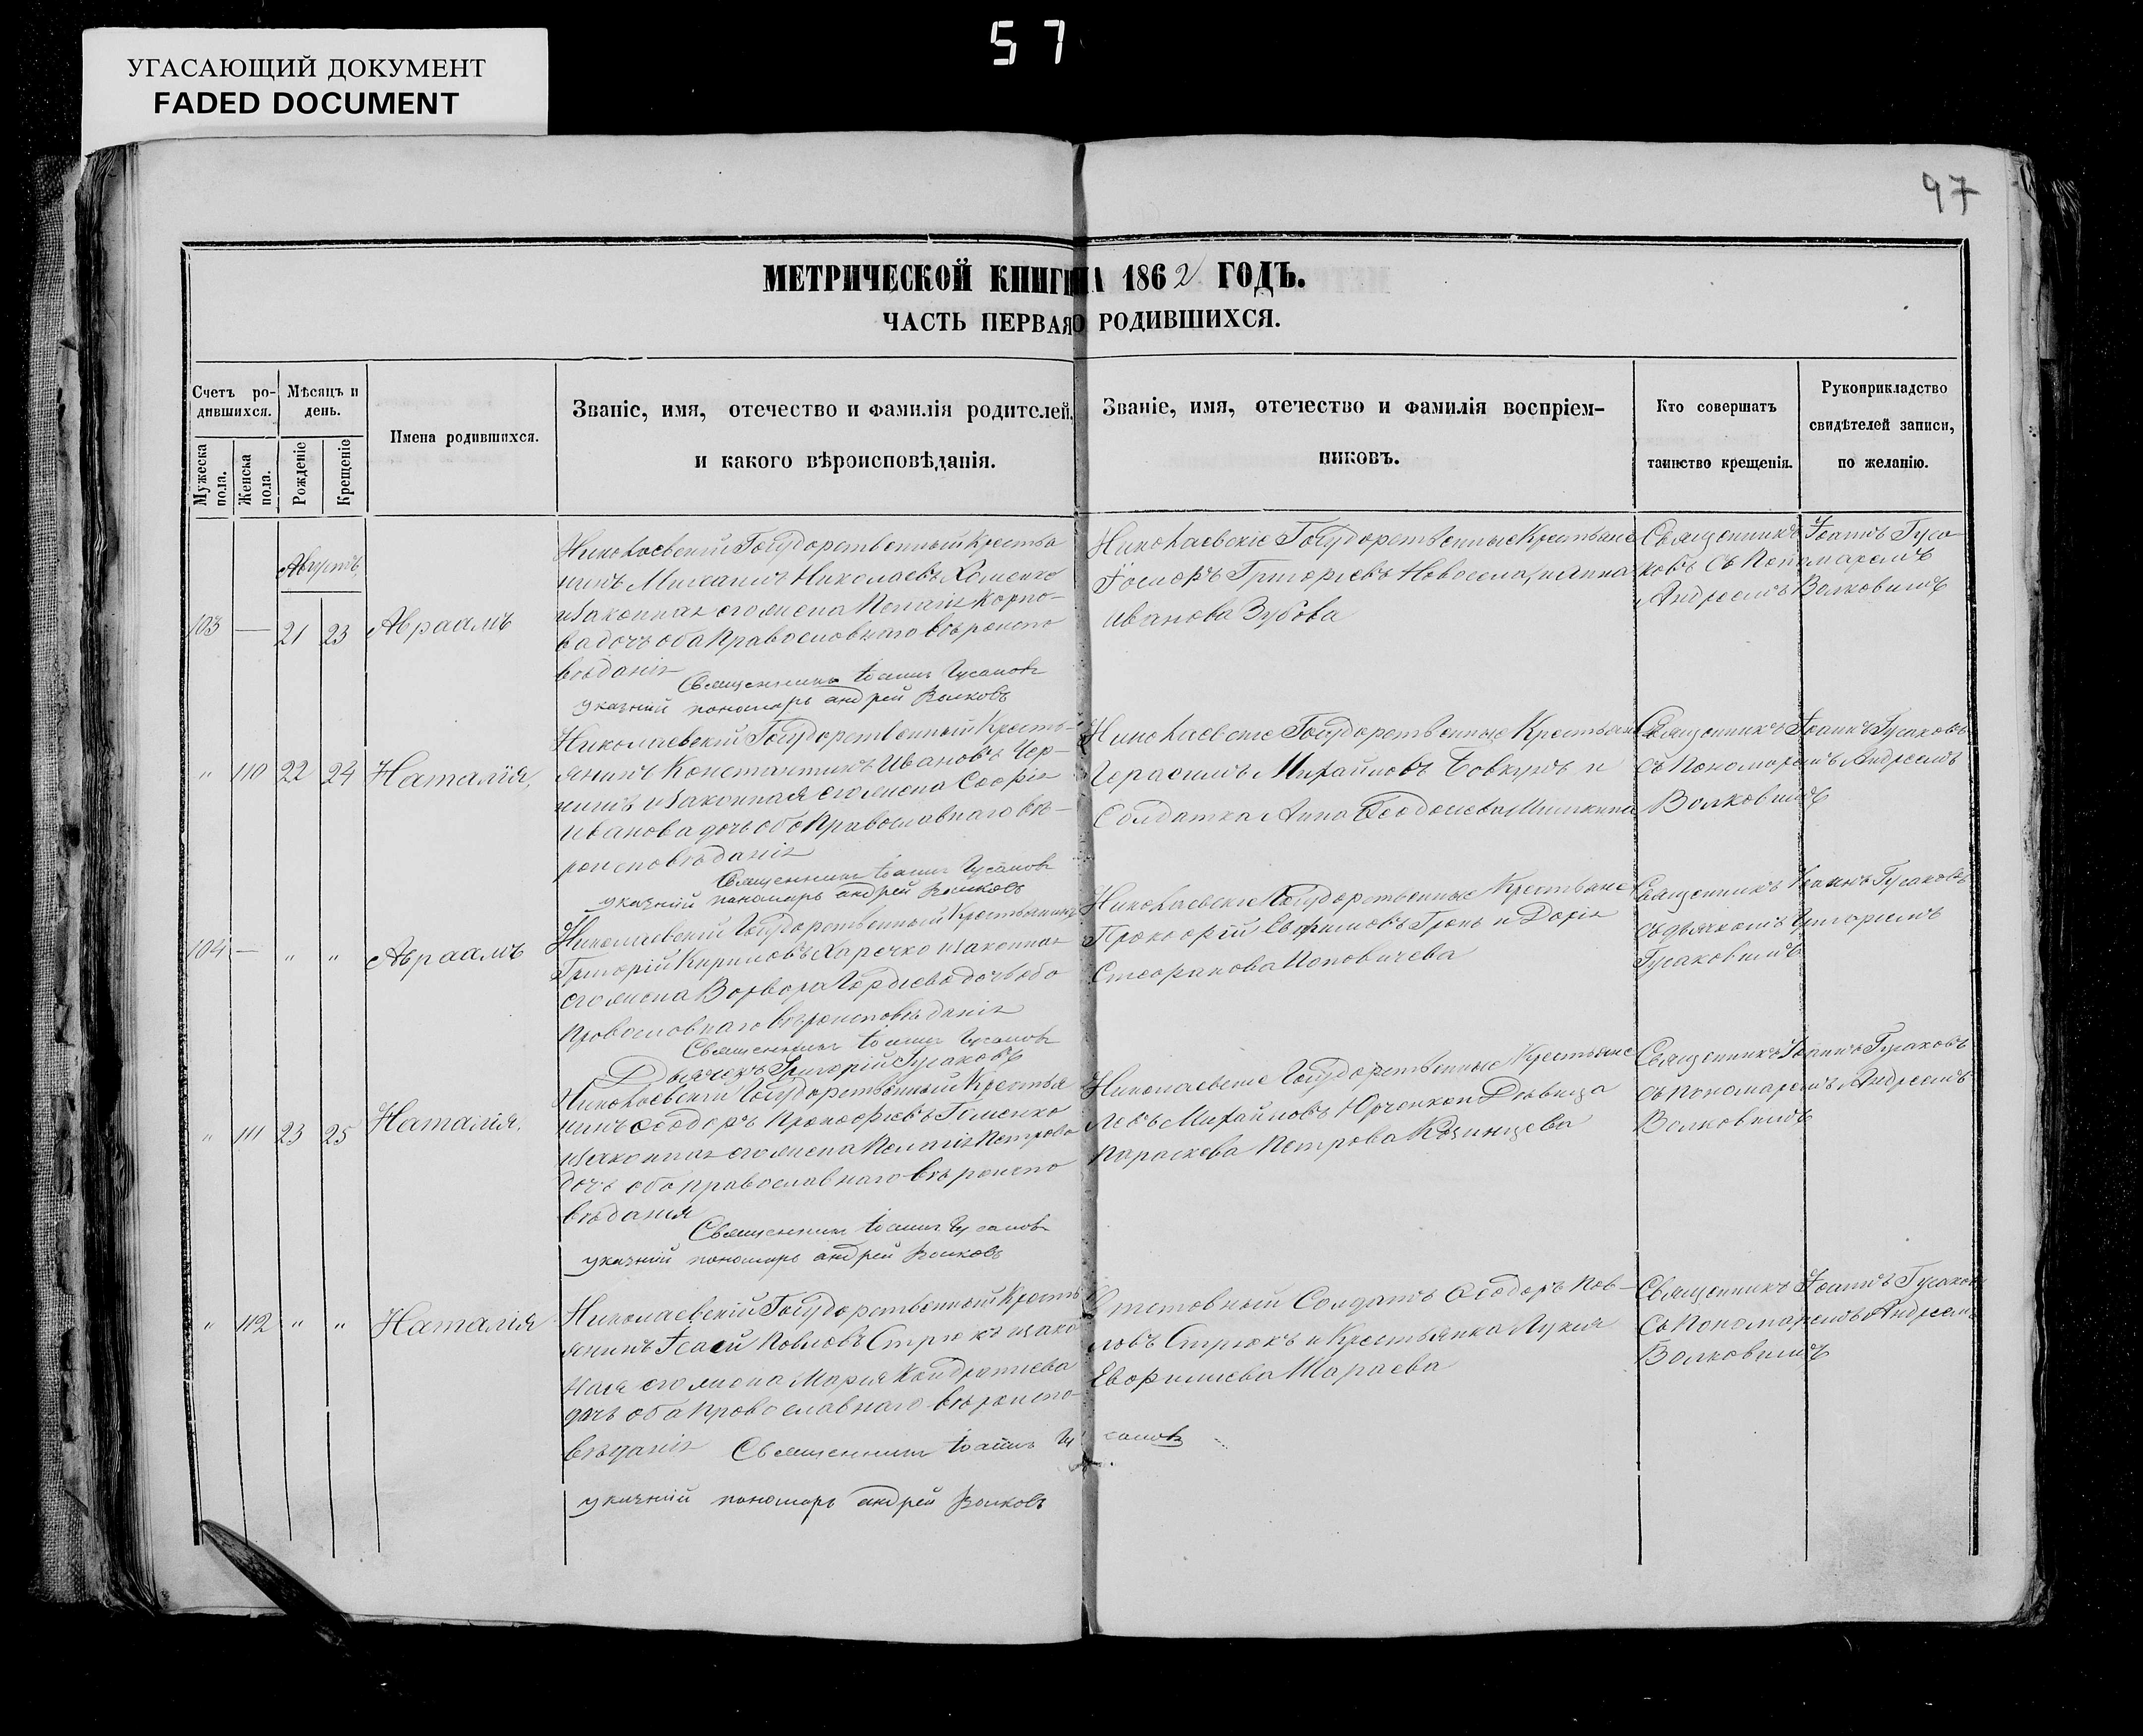 57
УГАСАЮЩИЙ ДОКУМЕНТ
FADED DOCUMENT
97
МЕТРИЧЕСКОЙ КНИГИ НА 1862 ГОДЪ.
ЧАСТЬ ПЕРВАЯ О РОДИВШИХСЯ.
Счетъ ро-
дившихся.
Мужеска пола.
Женска пола.
Мѣсяцъ и день.
Рожденіе
Крещеніе
Имена родившихся.
Званіе, имя, отечество и фамилія родителей,
и какого вѣроисповѣданія.
Званіе, имя, отечество и фамилія воспріем-
никовъ.
Кто совершатъ
таинство крещенія.
Рукоприкладство
свидѣтелей записи,
по желанію.
Августъ
103 — 21 23 Авраамъ
Николаевскій Государственный Крестья
нинъ Михаилъ Николаевъ Хоменко
и законная его жена Пелагія Карпо-
ва дочь оба Православнаго вѣроиспо
вѣданія
Священникъ Іоаннъ Гусаковъ
указный пономарь андрей Волковъ
Николаевскіе Государственные Крестьяне
Григорьевъ и Анна
Иванова Зубова
Священникъ Іоаннъ Гуса
ковъ съ Пономаремъ
Андреемъ Волковымъ
" 110 22 24 Наталія,
Николаевскій Государственный Кресть-
янинъ Константинъ Ивановъ Чер-
и законная его жена Софія
Иванова дочь оба Православнаго вѣ-
роисповѣданія
Священникъ Іоаннъ Гусаковъ
указный пономарь андрей Волковъ
Николаевскіе Государственные Крестьяне
Герасимъ Михайловъ Бовкунъ и
Солдатка Анна
Священникъ Іоаннъ Гусаковъ
съ Пономаремъ Андреемъ
Волковымъ
104 — " " Авраамъ
Николаевскій Государственный Крестьянинъ
Григорій Кириловъ и законная
его жена Варвара дочь оба
Православнаго вѣроисповѣданія
Священникъ Іоаннъ Гусаковъ
Дьячекъ Григорій Гусаковъ
Николаевскіе Государственные Крестьяне
Прокофій и Дарія
Стефанова Поповичева
Священникъ Іоаннъ Гусаковъ
съ дьячкомъ Григоріемъ
Гусаковымъ
" 111 23 25 Наталія.
Николаевскій Государственный Крестья
нинъ Ѳеодоръ Прокофіевъ
и законная его жена Пелагія Петрова
дочь оба православнаго вѣроиспо
вѣданія
Священникъ Іоаннъ Гусаковъ
указный пономарь андрей Волковъ
Николаевскіе Государственные Крестьяне
Левъ Михайловъ Юрченко и Дѣвица
Параскева Петрова
Священникъ Іоаннъ Гусаковъ
съ пономаремъ Андреемъ
Волковымъ
" 112 " " Наталія
Николаевскій Государственный Кресть
янинъ Павловъ Стрюкъ и закон
ная его жена Марія Кондратіева
дочь оба Православнаго вѣроиспо
вѣданія Священникъ Іоаннъ Гусаковъ
указный пономарь андрей Волковъ
Солдатъ Ѳеодоръ Пав-
ловъ Стрюкъ и Крестьянка Лукія
Шараева
Священникъ Іоаннъ Гусаковъ
Съ Пономаремъ Андреемъ
Волковымъ